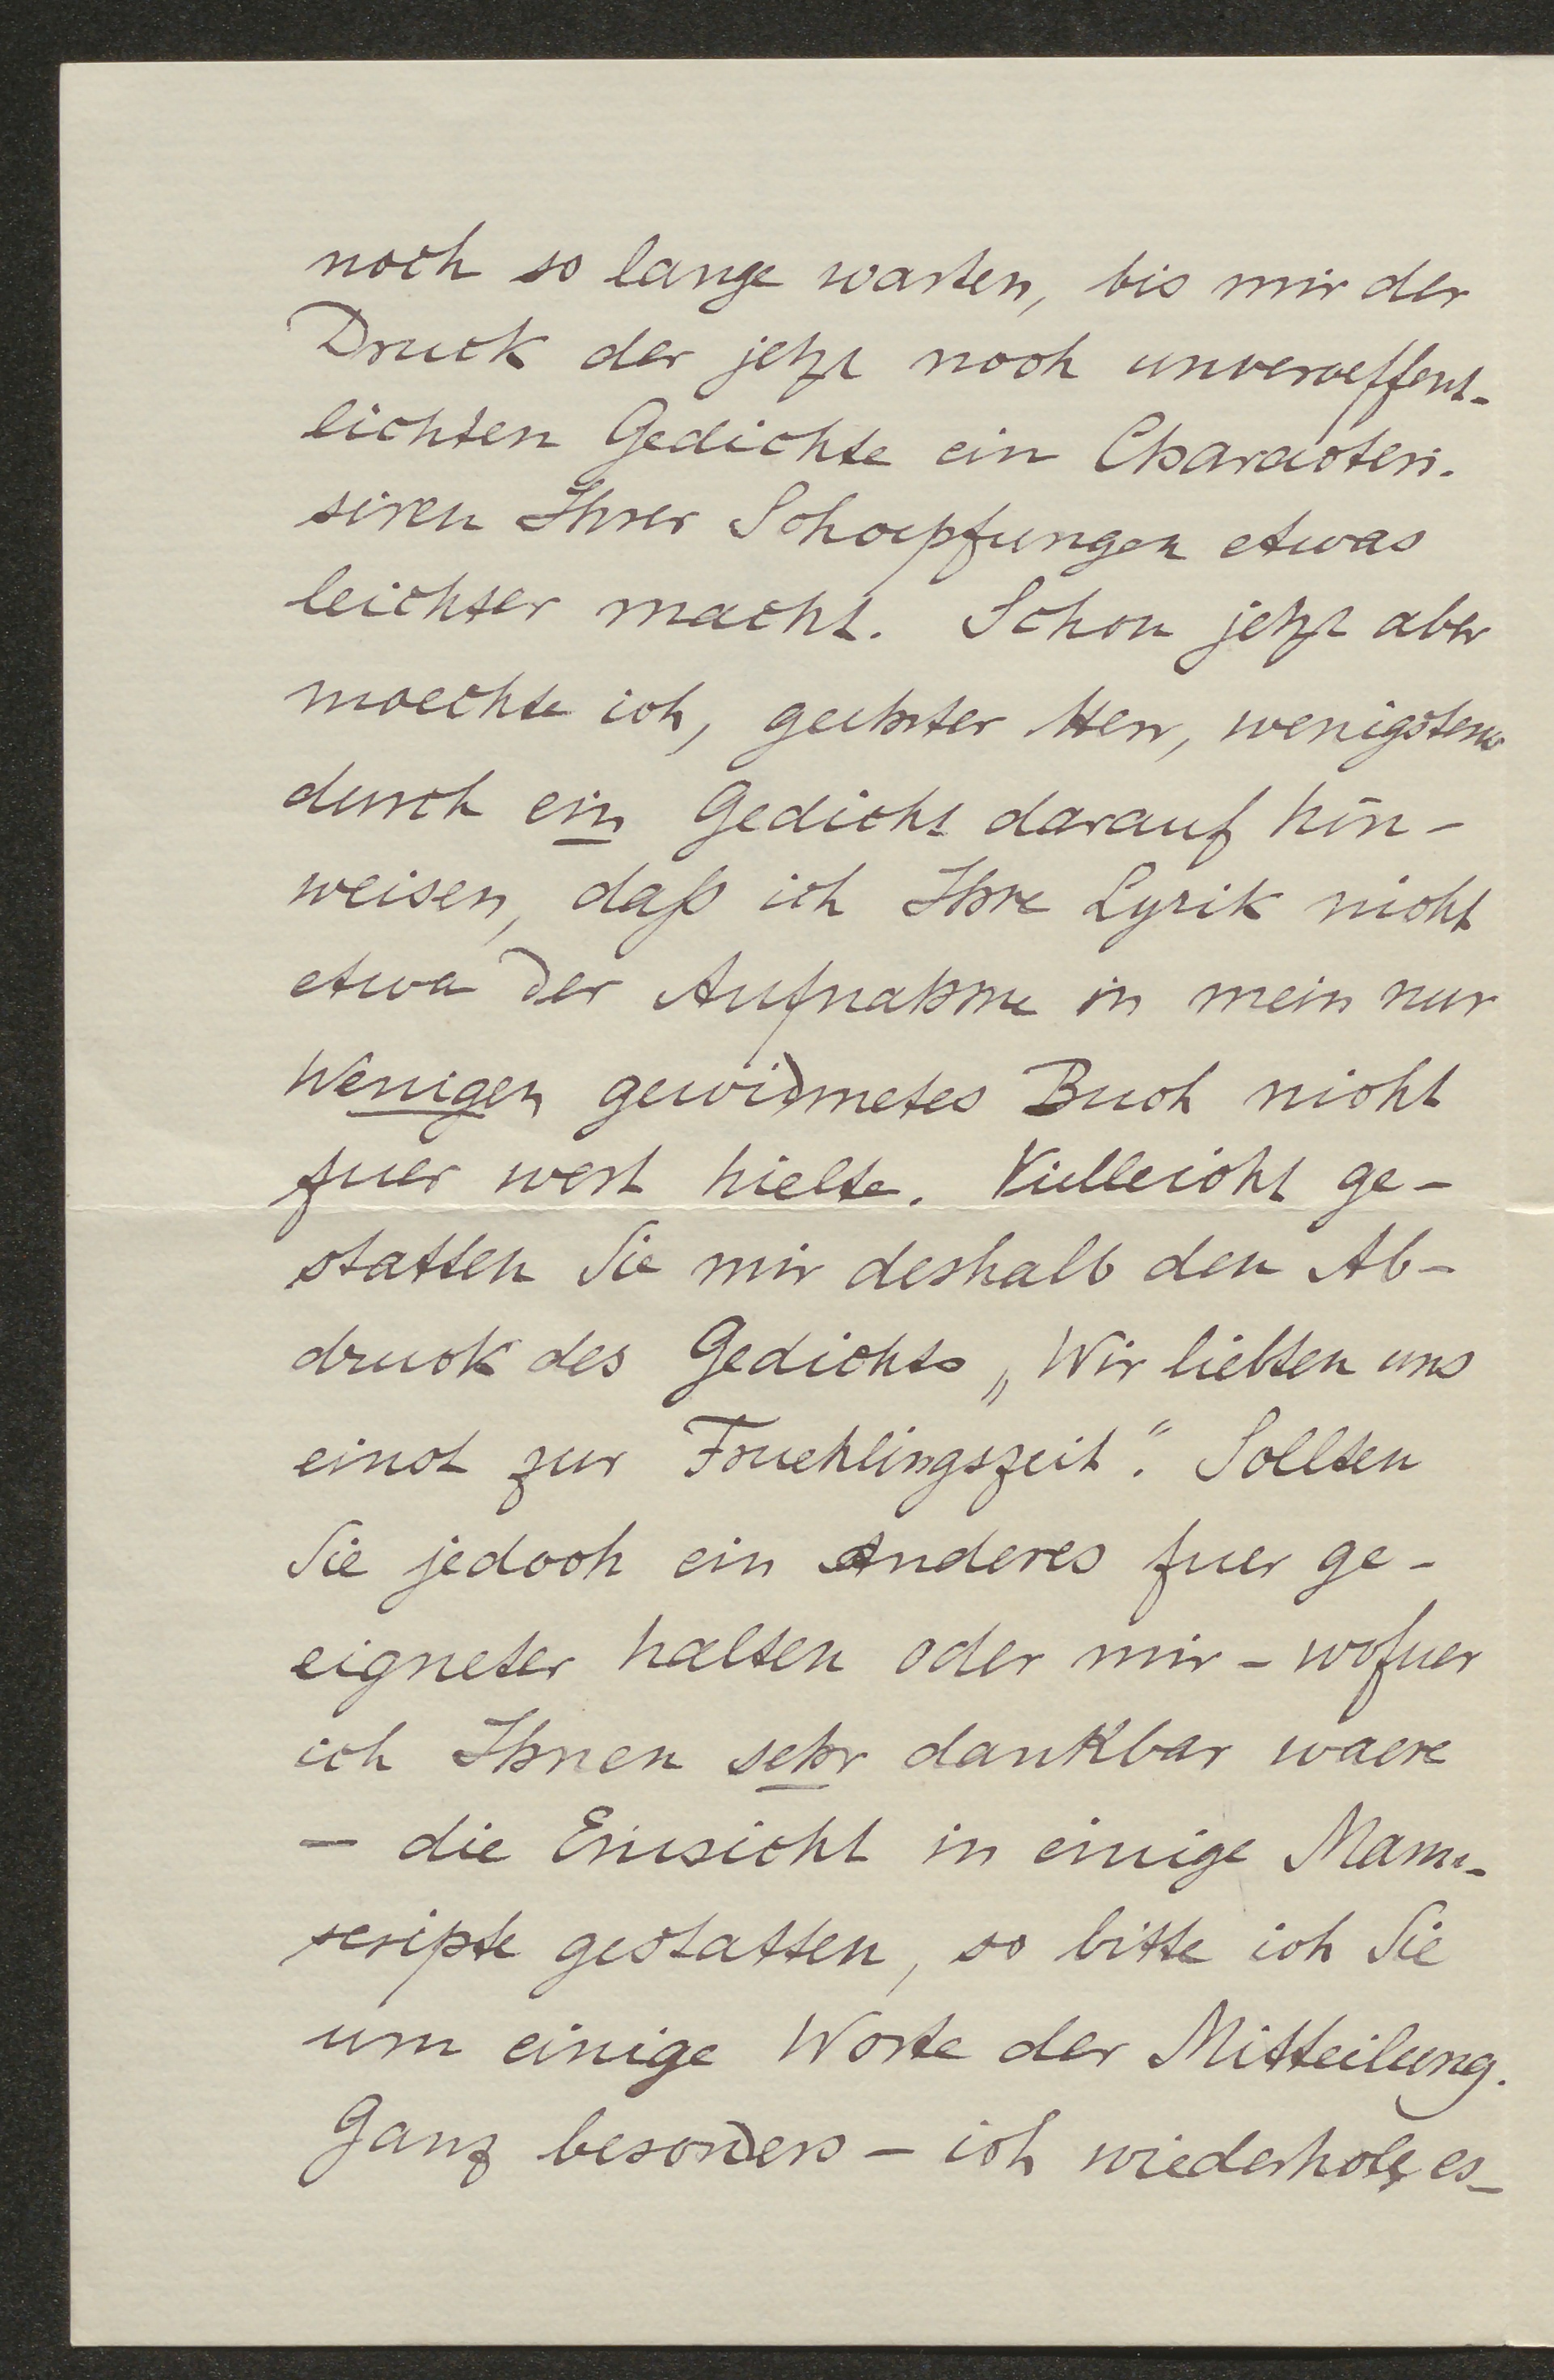 noch so lange warten, bis mir der
Druck der jetzt noch unveroeffent-
lichten Gedichte ein Characteri-
siren Ihrer Schoepfungen etwas
leichter macht. Schon jetzt aber
moechte ich, geehrter Herr, wenigstens
durch ein Gedicht darauf hin-
weisen, daß ich Ihre Lyrik nicht
etwa der Aufnahme in mein nur
Wenigen gewidmetes Buch nicht
fuer wert hielte. Vielleicht ge-
statten Sie mir deshalb den Ab-
druck des Gedichts „Wir liebten uns
einst zur Fruehlingszeit“. Sollten
Sie jedoch ein Anderes fuer ge-
eigneter halten oder mir - wofuer
ich Ihnen sehr dankbar waere
- die Einsicht in einige Manu-
scripte gestatten, so bitte ich Sie
um einige Worte der Mitteilung.
Ganz besonders - ich wiederhole es -